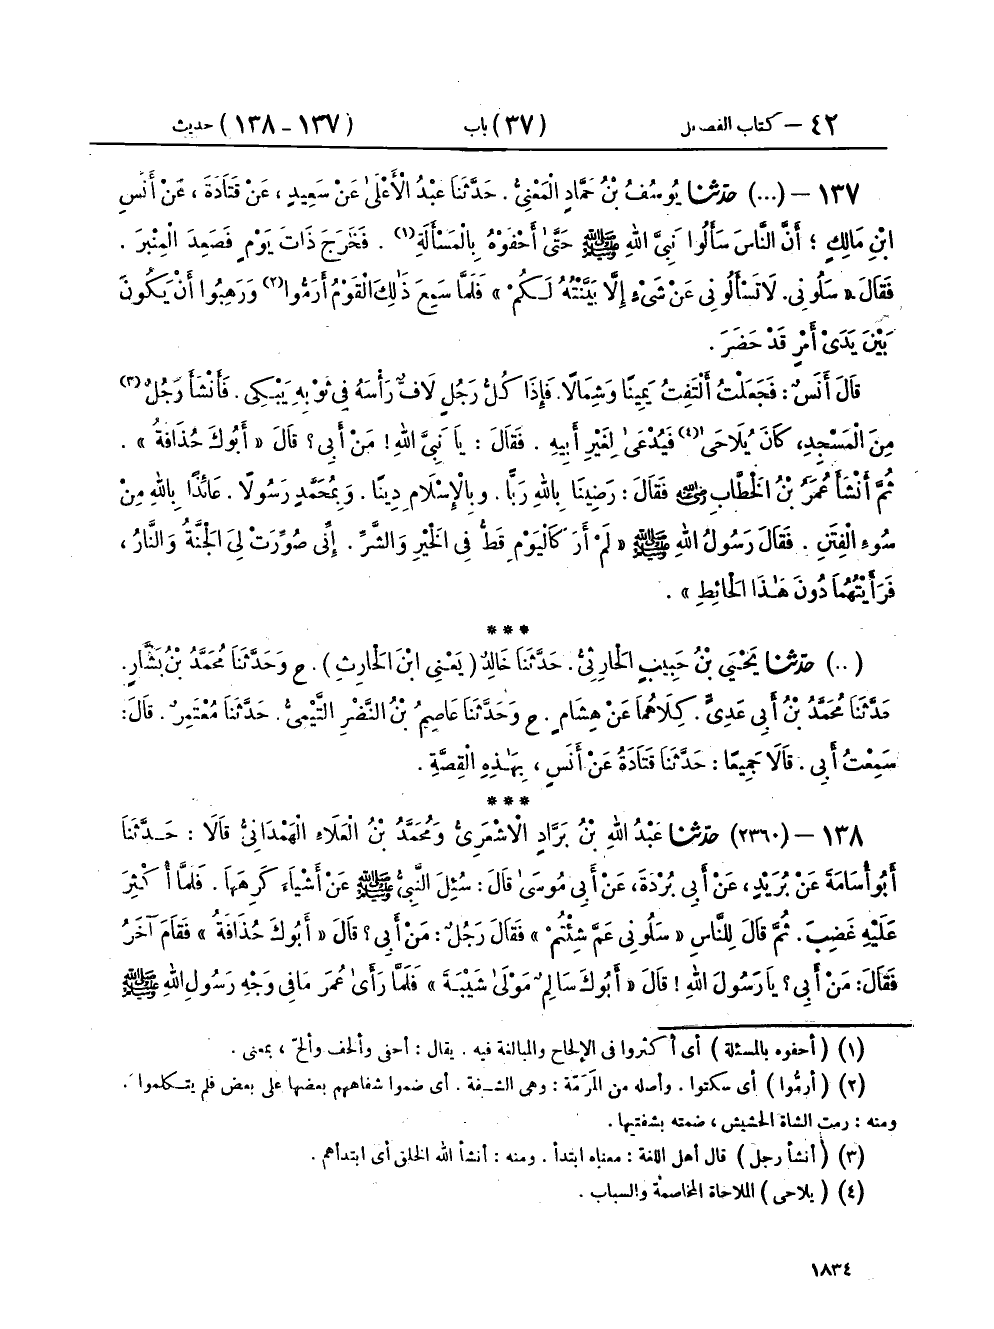 ٤٢ – كتاب الفصائل (٣٧) باب (١٣٧ – ١٣٨) حديث
١٣٧ – (...) حَدَّثَنَا يُوسُفُ بْنُ حَمَّادٍ الْمَعْنِيُّ. حَدَّثَنَا عَبْدُ الْأَعْلَىٰ عَنْ سَعِيدٍ، عَنْ قَتَادَةَ، عَنْ أَنَسِ
ابْنِ مَالِكٍ؛ أَنَّ النَّاسَ سَأَلُوا نَبِيَّ اللهِ ﷺ حَتَّىٰ أَحْفَوْهُ بِالْمَسْأَلَةِ(١). فَخَرَجَ ذَاتَ يَوْمٍ فَصَعِدَ الْمِنْبَرَ.
فَقَالَ « سَلُونِي. لَا تَسْأَلُونِي عَنْ شَيْءٍ إِلَّا بَيَّنْتُهُ لَكُمْ » فَلَمَّا سَمِعَ ذَٰلِكَ الْقَوْمُ أَرَمُّوا(٢) وَرَهِبُوا أَنْ يَكُونَ
بَيْنَ يَدَيْ أَمْرٍ قَدْ حَضَرَ.
قَالَ أَنَسٌ: فَجَعَلْتُ أَلْتَفِتُ يَمِينًا وَشِمَالًا. فَإِذَا كُلُّ رَجُلٍ لَافٌّ رَأْسَهُ فِي ثَوْبِهِ يَبْكِي. فَأَنْشَأَ رَجُلٌ(٣)
مِنَ الْمَسْجِدِ، كَانَ يُلَاحَىٰ(٤) فَيُدْعَىٰ لِغَيْرِ أَبِيهِ. فَقَالَ: يَا نَبِيَّ اللهِ! مَنْ أَبِي؟ قَالَ « أَبُوكَ حُذَافَةُ ».
ثُمَّ أَنْشَأَ عُمَرُ بْنُ الْخَطَّابِ رضي الله عنه فَقَالَ: رَضِينَا بِاللهِ رَبًّا. وَبِالْإِسْلَامِ دِينًا. وَبِمُحَمَّدٍ رَسُولًا. عَائِذًا بِاللهِ مِنْ
سُوءِ الْفِتَنِ. فَقَالَ رَسُولُ اللهِ ﷺ « لَمْ أَرَ كَالْيَوْمِ قَطُّ فِي الْخَيْرِ وَالشَّرِّ. إِنِّي صُوِّرَتْ لِيَ الْجَنَّةُ وَالنَّارُ،
فَرَأَيْتُهُمَا دُونَ هَٰذَا الْحَائِطِ ».
***
(..) حَدَّثَنَا يَحْيَى بْنُ حَبِيبٍ الْحَارِثِيُّ. حَدَّثَنَا خَالِدٌ (يَعْنِي ابْنَ الْحَارِثِ). ح وَحَدَّثَنَا مُحَمَّدُ بْنُ بَشَّارٍ.
حَدَّثَنَا مُحَمَّدُ بْنُ أَبِي عَدِيٍّ. كِلَاهُمَا عَنْ هِشَامٍ. ح وَحَدَّثَنَا عَاصِمُ بْنُ النَّضْرِ التَّيْمِيُّ. حَدَّثَنَا مُعْتَمِرٌ. قَالَ:
سَمِعْتُ أَبِي. قَالَا جَمِيعًا: حَدَّثَنَا قَتَادَةُ عَنْ أَنَسٍ، بِهَٰذِهِ الْقِصَّةِ.
***
١٣٨ – (٢٣٦٠) حَدَّثَنَا عَبْدُ اللهِ بْنُ بَرَّادٍ الْأَشْعَرِيُّ وَمُحَمَّدُ بْنُ الْعَلَاءِ الْهَمْدَانِيُّ قَالَا: حَدَّثَنَا
أَبُو أُسَامَةَ عَنْ بُرَيْدٍ، عَنْ أَبِي بُرْدَةَ، عَنْ أَبِي مُوسَىٰ قَالَ: سُئِلَ النَّبِيُّ ﷺ عَنْ أَشْيَاءَ كَرِهَهَا. فَلَمَّا أُكْثِرَ
عَلَيْهِ غَضِبَ. ثُمَّ قَالَ لِلنَّاسِ « سَلُونِي عَمَّ شِئْتُمْ » فَقَالَ رَجُلٌ: مَنْ أَبِي؟ قَالَ « أَبُوكَ حُذَافَةُ » فَقَامَ آخَرُ
فَقَالَ: مَنْ أَبِي؟ يَا رَسُولَ اللهِ! قَالَ « أَبُوكَ سَالِمٌ مَوْلَىٰ شَيْبَةَ » فَلَمَّا رَأَىٰ عُمَرُ مَا فِي وَجْهِ رَسُولِ اللهِ ﷺ
(١) (أحفوه بالمسئلة) أى أكثروا فى الإلحاح والمبالغة فيه. يقال: أحفى وألحف وألحّ، بمعنى.
(٢) (أرمُّوا) أى سكتوا. وأصله من المَرَمّة: وهى الشفة. أى ضموا شفاههم بعضها على بعض فلم يتكلموا.
ومنه: رمت الشاة الحشيش، ضمته بشفتيها.
(٣) (أنشأ رجل) قال أهل اللغة: معناه ابتدأ. ومنه: أنشأ الله الخلق أى ابتدأهم.
(٤) (يلاحى) الملاحاة المخاصمة والسباب.
١٨٣٤